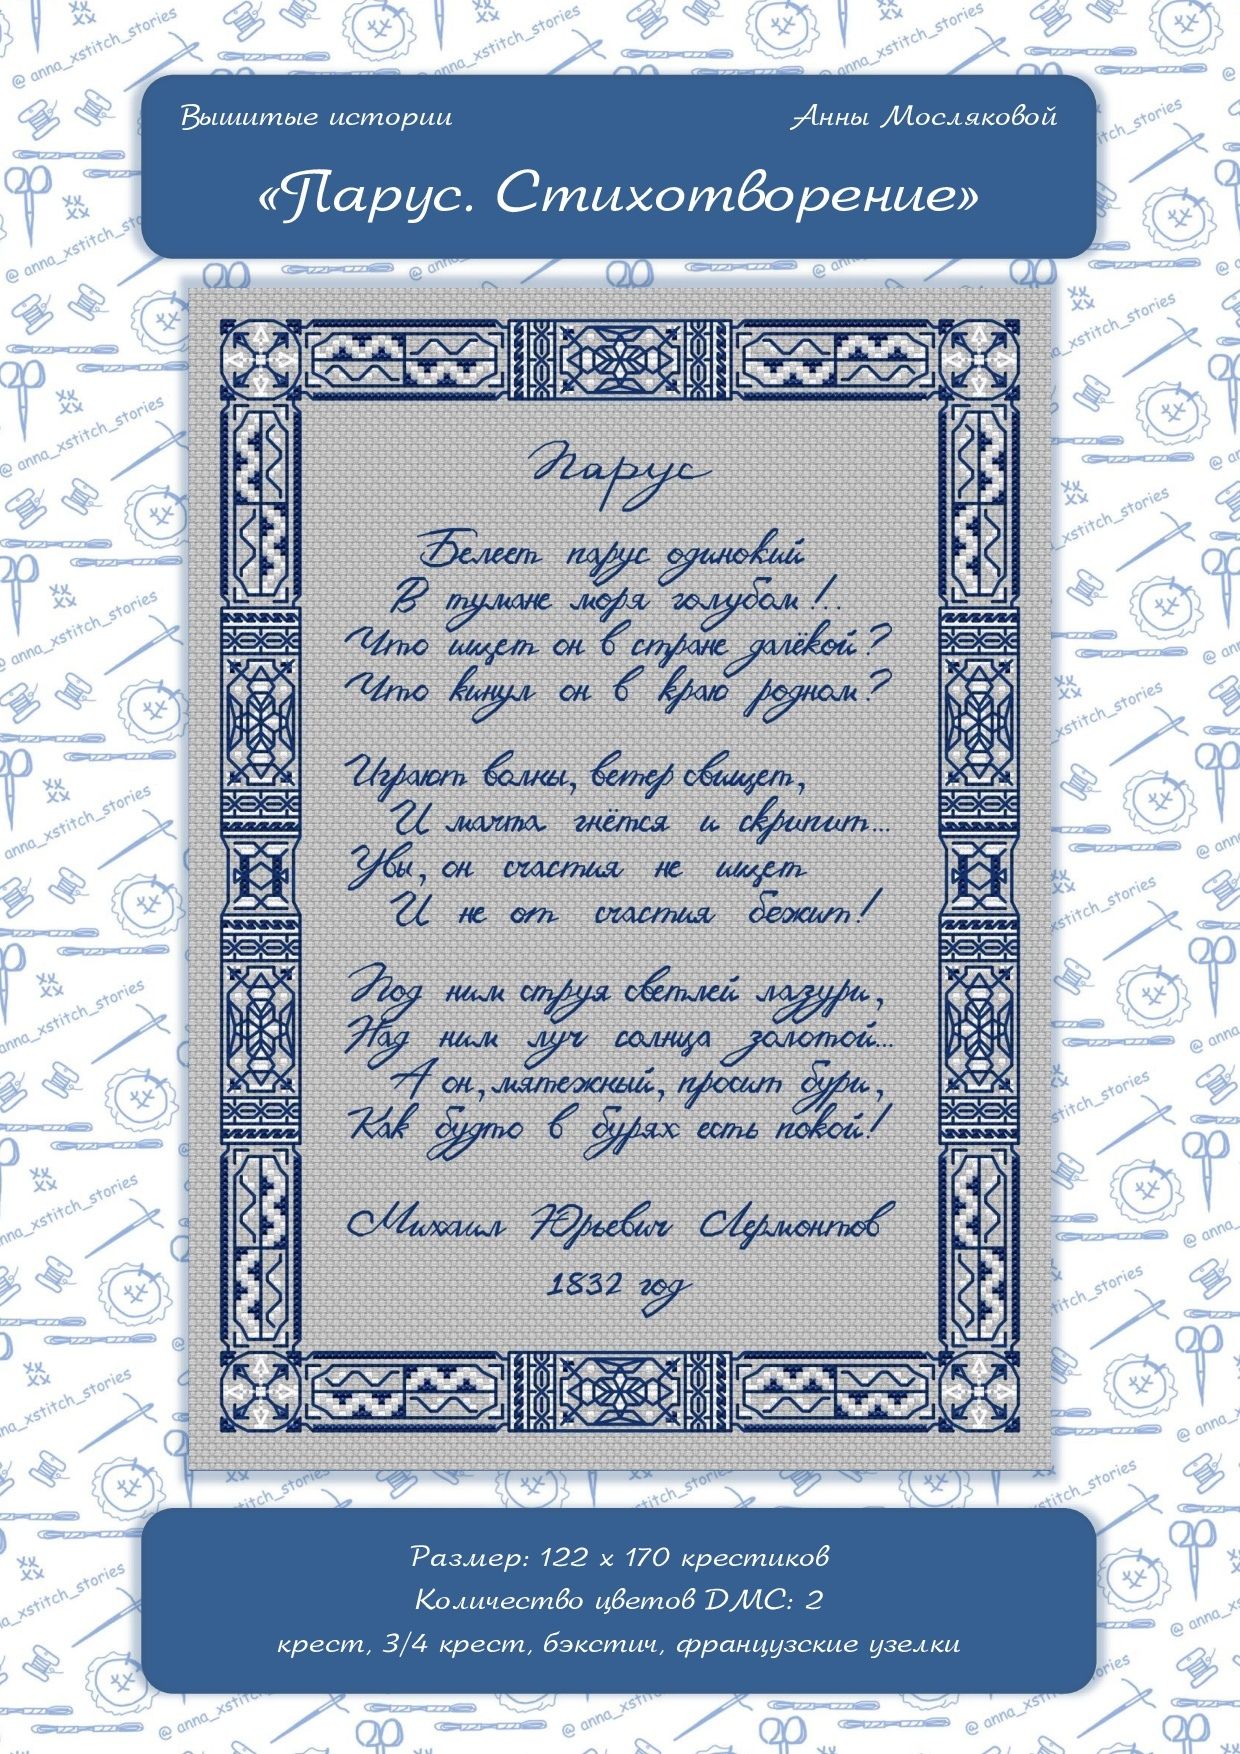 Вышитые истории Анны Мосляковой
«Парус. Стихотворение»
Парус
Белеет парус одинокий
В тумане моря голубом!..
Что ищет он в стране далёкой?
Что кинул он в краю родном?
Играют волны, ветер свищет,
И мачта гнётся и скрипит...
Увы, он счастия не ищет
И не от счастия бежит!
Под ним струя светлей лазури,
Над ним луч солнца золотой...
А он, мятежный, просит бури,
Как будто в бурях есть покой!
Михаил Юрьевич Лермонтов
1832 год
Размер: 122 х 170 крестиков
Количество цветов DMC: 2
крест, 3/4 крест, бэкстич, французские узелки
@ anna_xstitch_stories